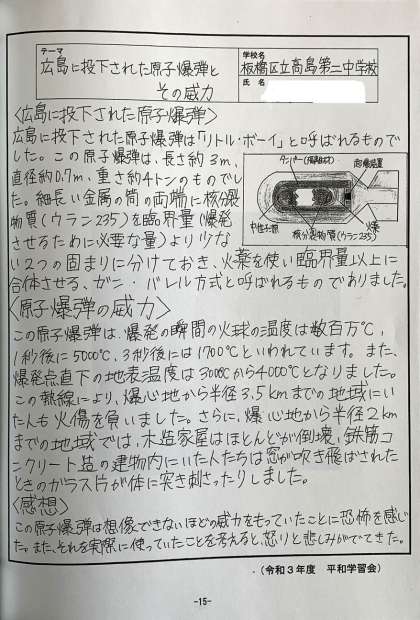 テーマ
広島に投下された原子爆弾と
その威力
学校名
板橋区立高島第二中学校
氏名
〈広島に投下された原子爆弾〉
広島に投下された原子爆弾は「リトル・ボーイ」と呼ばれるもので
した。この原子爆弾は、長さ約3m、
直径約0.7m、重さ約4トンのものでし
た。細長い金属の筒の両端に核分裂
物質(ウラン235)を臨界量(爆発
させるために必要な量)より少な
い2つの固まりに分けておき、火薬を使い臨界量以上に
合体させる、ガン・バレル方式と呼ばれるものでありました。
タンパー
起爆装置
中性子源
核分裂物質(ウラン235)
火薬
〈原子爆弾の威力〉
この原子爆弾は、爆発の瞬間の火球の温度は数百万℃、
1秒後に5000℃、3秒後には1700℃といわれています。また、
爆発点直下の地表温度は3000℃から4000℃となりました。
この熱線により、爆心地から半径3.5kmまでの地域にい
た人も火傷を負いました。さらに、爆心地から半径2km
までの地域では、木造家屋はほとんどが倒壊、鉄筋コ
ンクリート造の建物内にいた人たちは窓が吹き飛ばされた
ときのガラス片が体に突き刺さったりしました。
〈感想〉
この原子爆弾は想像できないほどの威力をもっていたことに恐怖を感じ
た。また、それを実際に使っていたことを考えると、怒りと悲しみがでてきた。
(令和3年度 平和学習会)
-15-